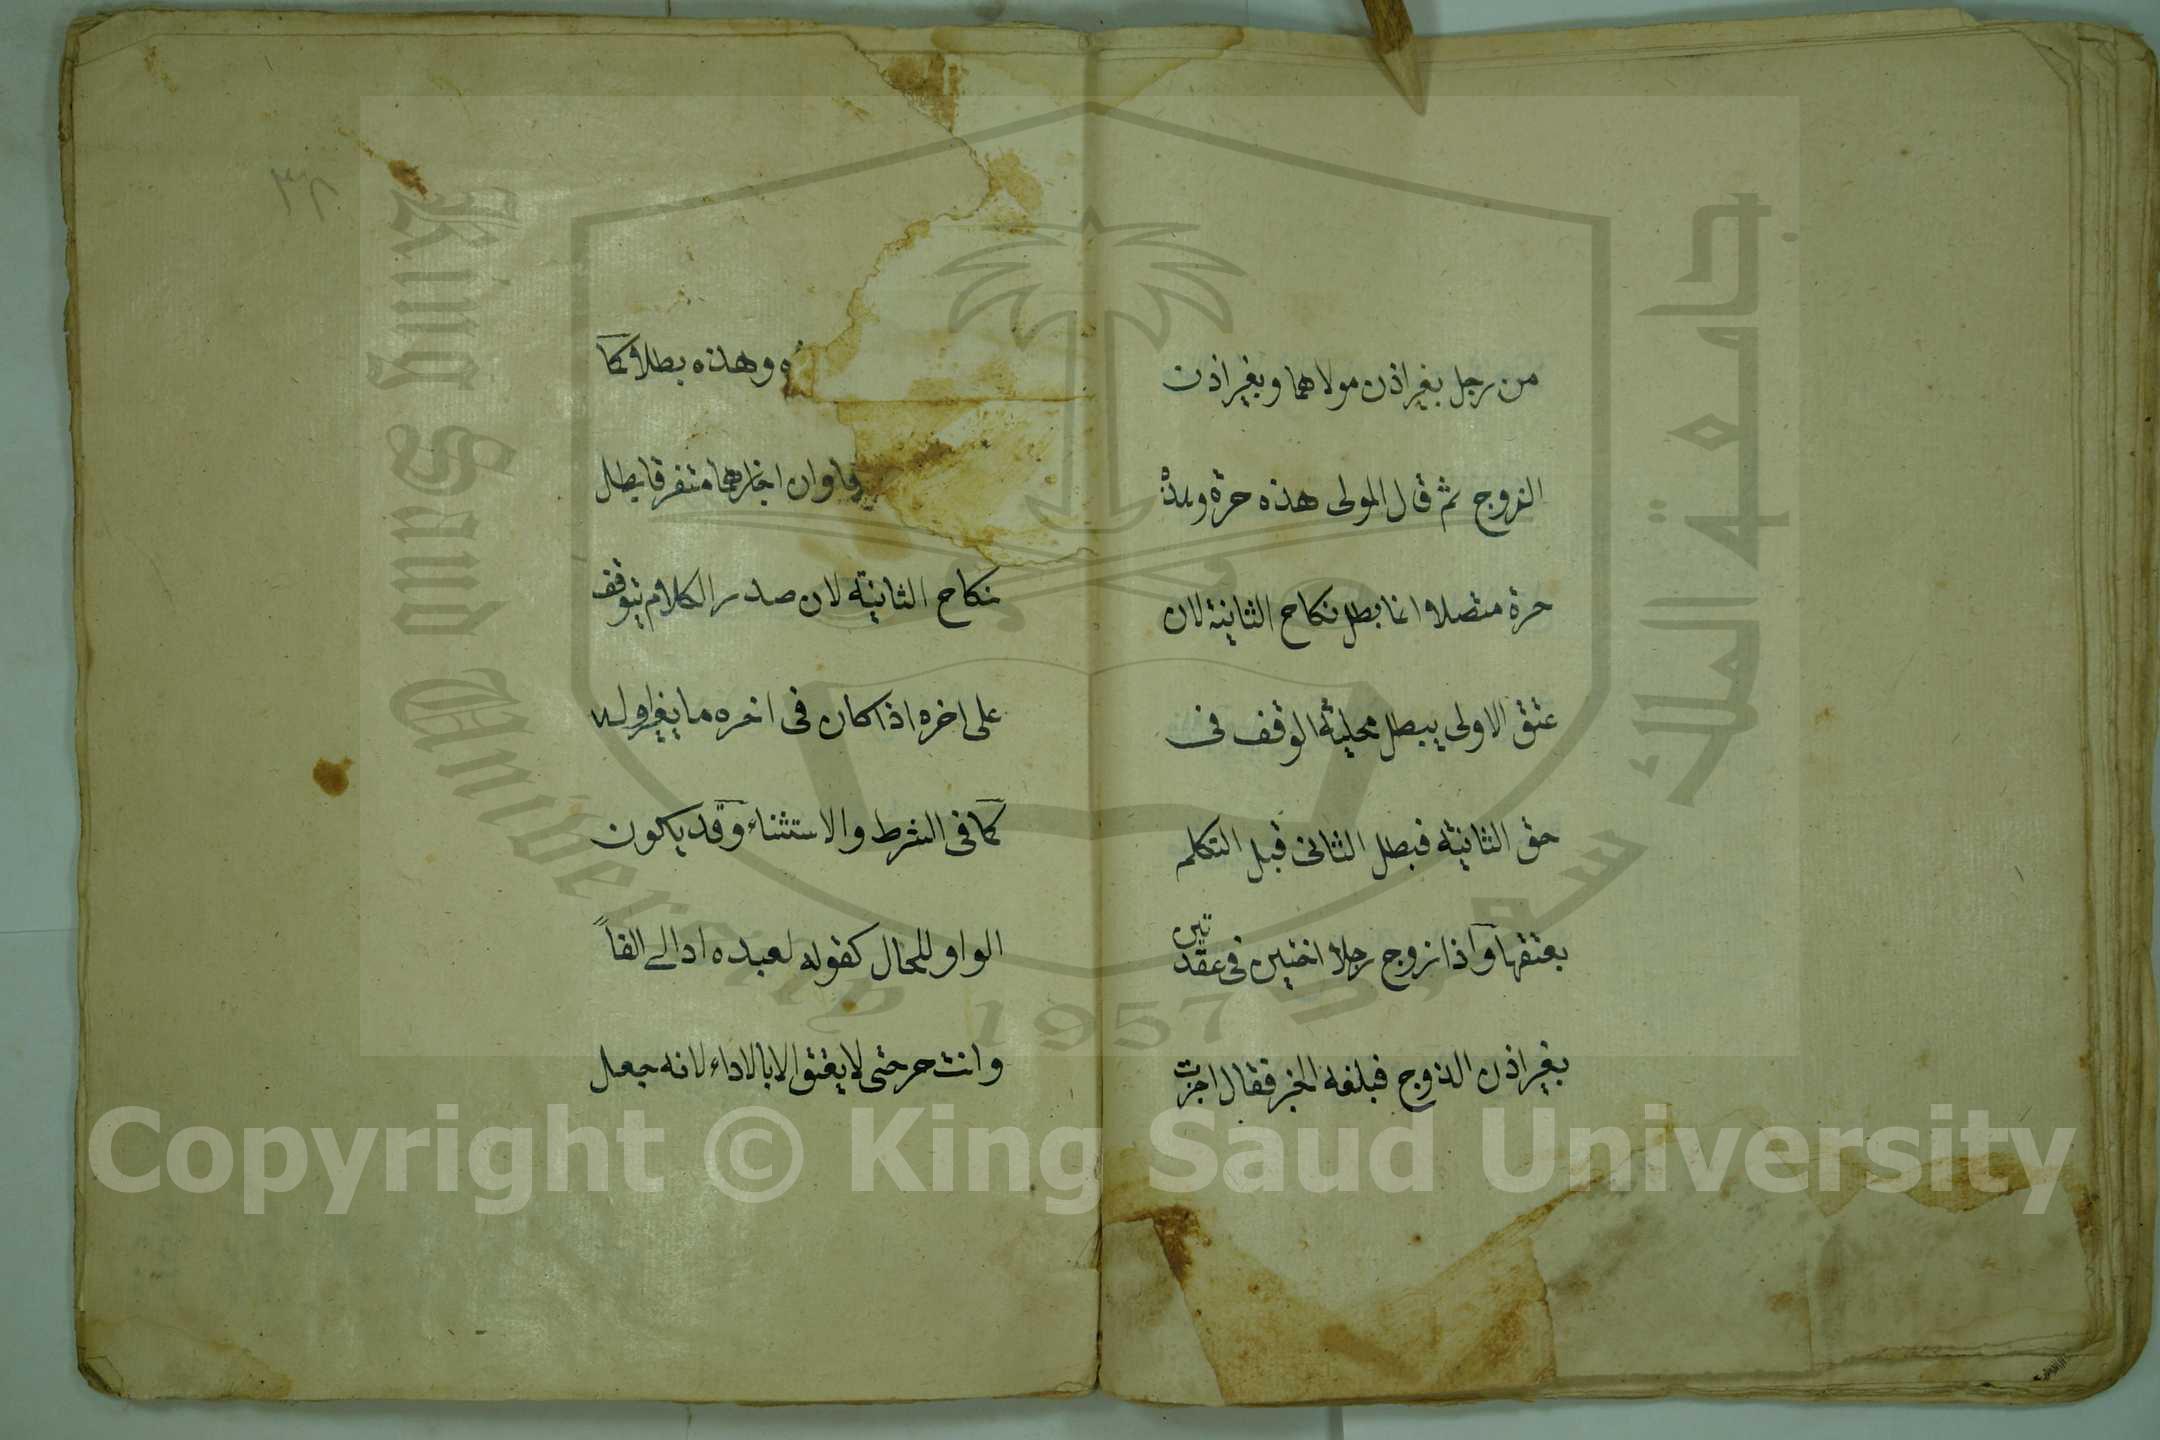 من رجل بغير اذن مولاهما وبغير اذن
الزوج ثم قال المولى هذه حرة وهذه
حرة متصلا انما بطل نكاح الثانية لان
عتق الاولى يبطل محلية الوقف فى
حق الثانية فبطل الثانى قبل التكلم
بعتقها واذا زوج رجلا اختين فى عقدتين
بغير اذن الزوج فبلغه الخبر فقال اجزت
وهذه بطلا كما
وان اجازهما متفرقا بطل
نكاح الثانية لان صدر الكلام يتوقف
على اخره اذا كان فى اخره ما يغير اوله
كما فى الشرط والاستثناء وقد يكون
الواو للحال كقوله لعبده اد الى الفاً
وانت حر حتى لا يعتق الا بالاداء لانه جعل
King Saud University
جامعة الملك سعود
1957
Copyright © King Saud University